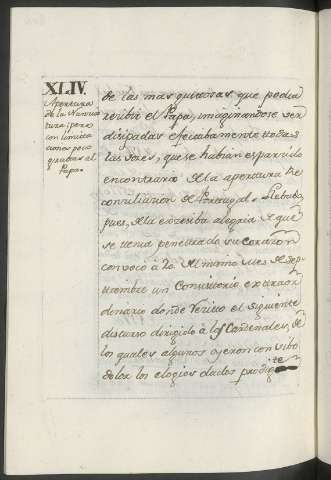 XLIV.
Apertura
de la Nuncia
tura, pero
con limita
ciones poco
gratas al
Papa.
de las mas gustosas que podia
recibir el Papa, imaginandose ser
disipadas efectivamente todas
las voces, que se habian esparcido
en contrario de la apertura de
conciliacion de Portugal. Llebado,
pues, de la excesiva alegria de que
se veia penetrado su corazon
convocó à 20. del mismo mes de Sep
tiembre un Consistorio extraor
dinario donde recitó el siguiente
discurso dirigido à los Cardenales, de
los quales algunos oyeron con vibo
dolor los elogios dados prodiga